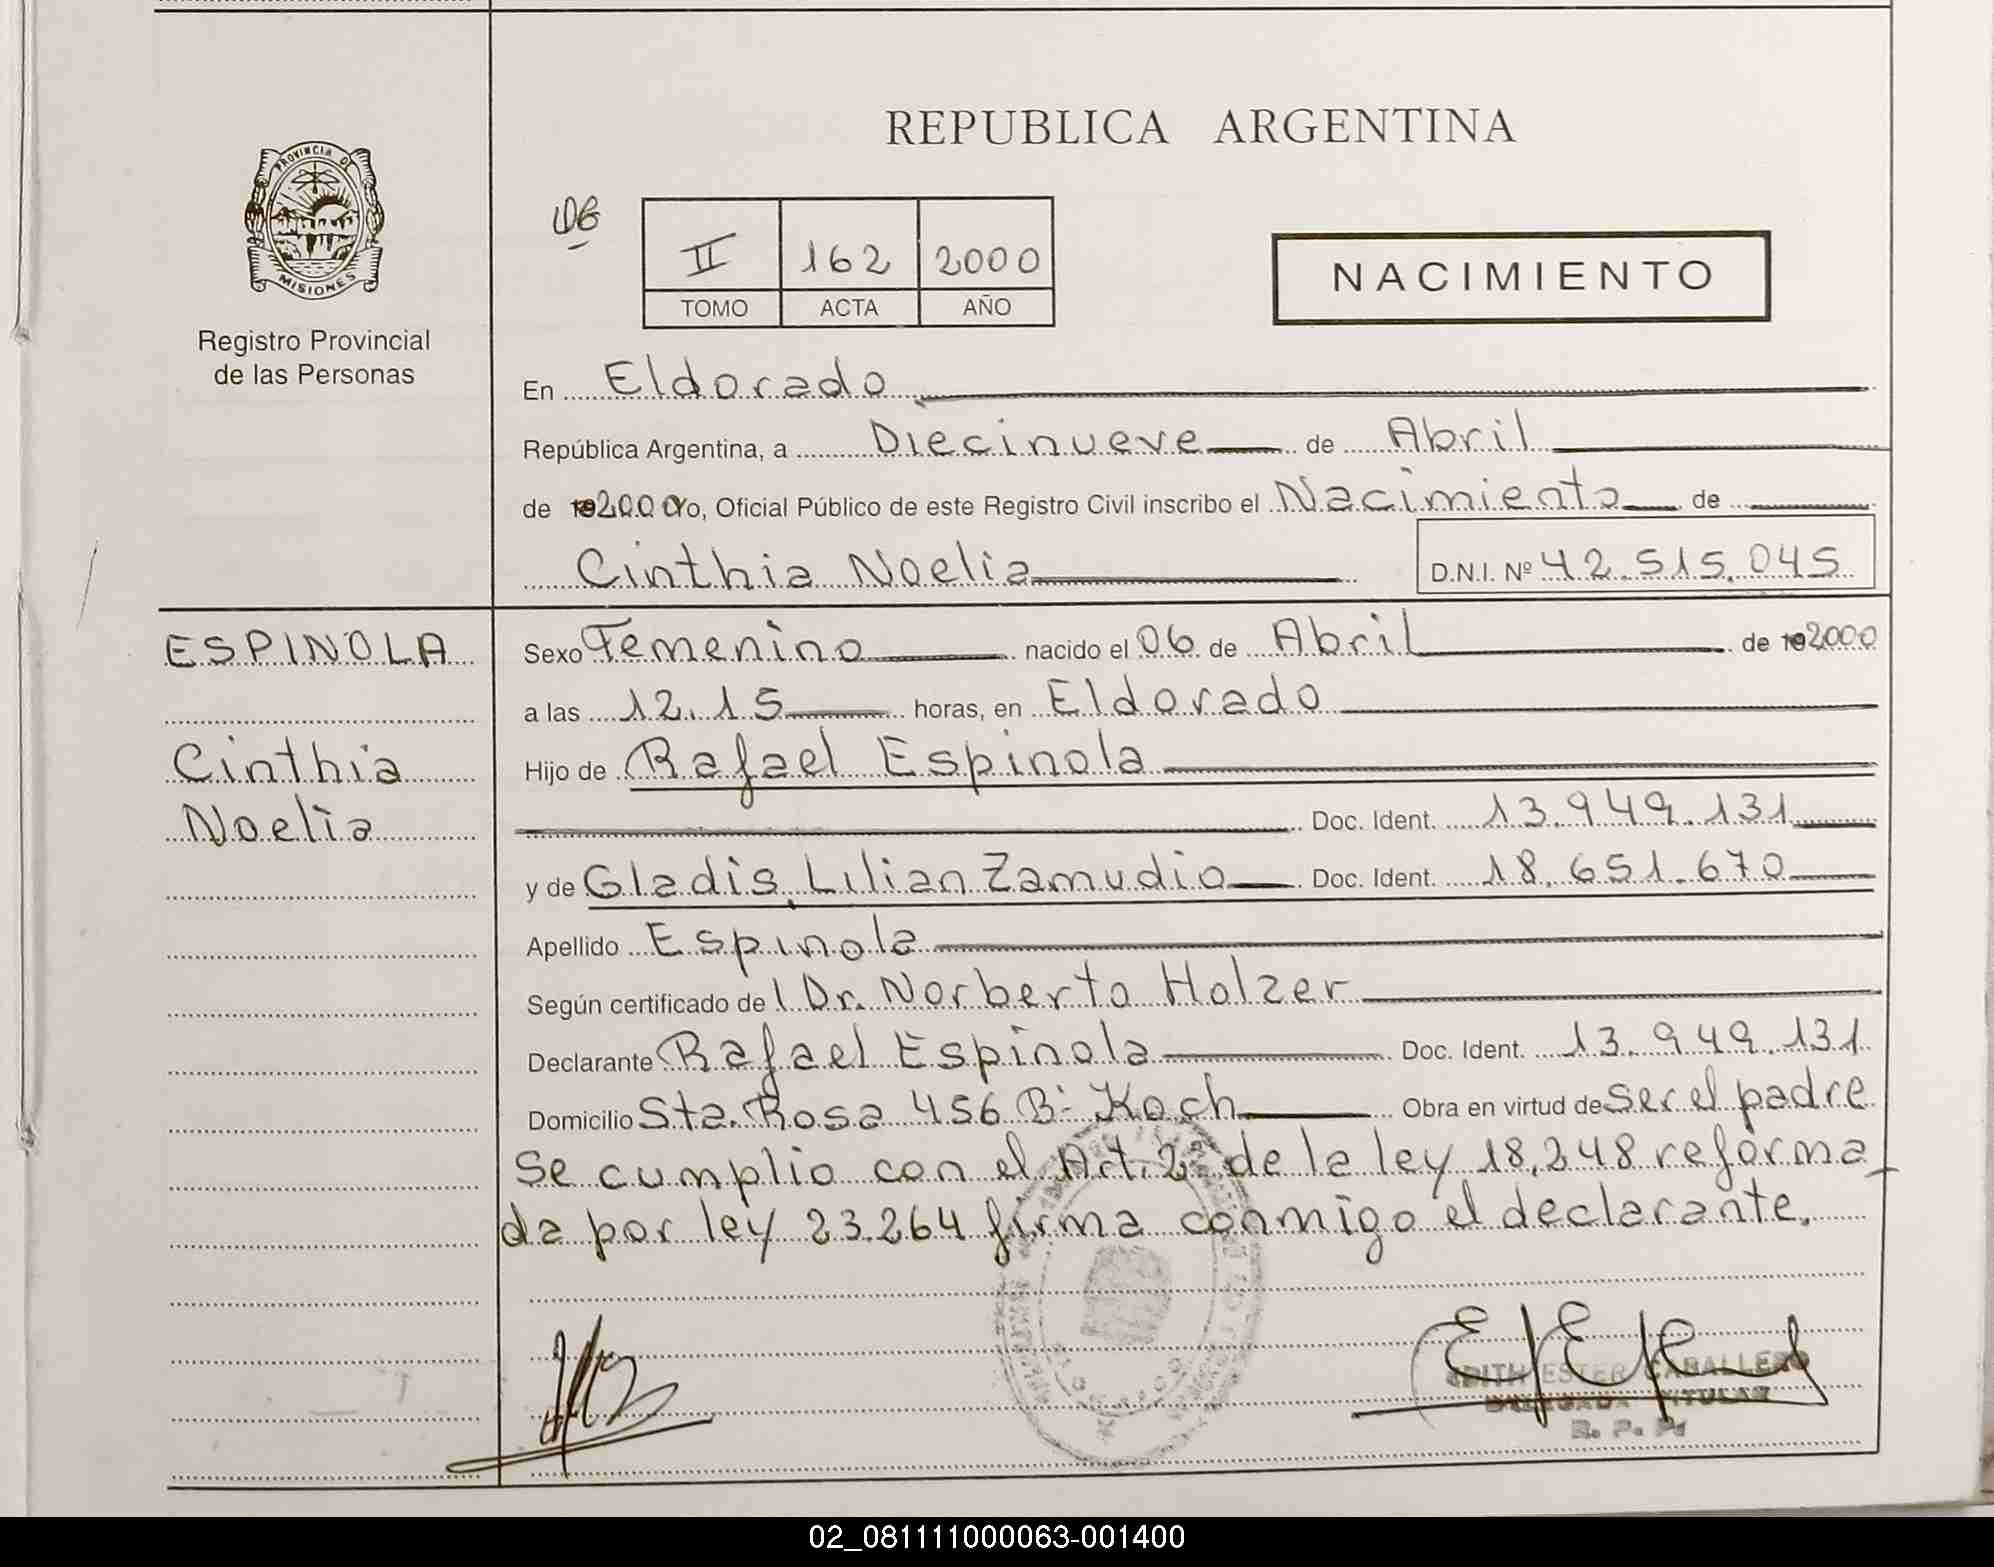 REPUBLICA ARGENTINA
PROVINCIA DE
MISIONES
Registro Provincial
de las Personas
06
II 162 2000
TOMO ACTA AÑO
NACIMIENTO
En Eldorado
República Argentina, a Diecinueve de Abril
de 192000 Yo, Oficial Público de este Registro Civil inscribo el Nacimiento de
Cinthia Noelia D.N.I. Nº 42.515.045
ESPINOLA
Cinthia
Noelia
Sexo Femenino nacido el 06 de Abril de 192000
a las 12.15 horas, en Eldorado
Hijo de Rafael Espinola
Doc. Ident. 13.949.131
y de Gladis Lilian Zamudio Doc. Ident. 18.651.670
Apellido Espinola
Según certificado de l Dr. Norberto Holzer
Declarante Rafael Espinola Doc. Ident. 13.949.131
Domicilio Sta. Rosa 456 Bº Koch Obra en virtud de ser el padre
Se cumplio con el Art. 2º de la ley 18.248 reforma_
da por ley 23.264 firma conmigo el declarante.
EDITH ESTER CABALLERO
DELEGADA TITULAR
R. P. P.
02_081111000063-001400